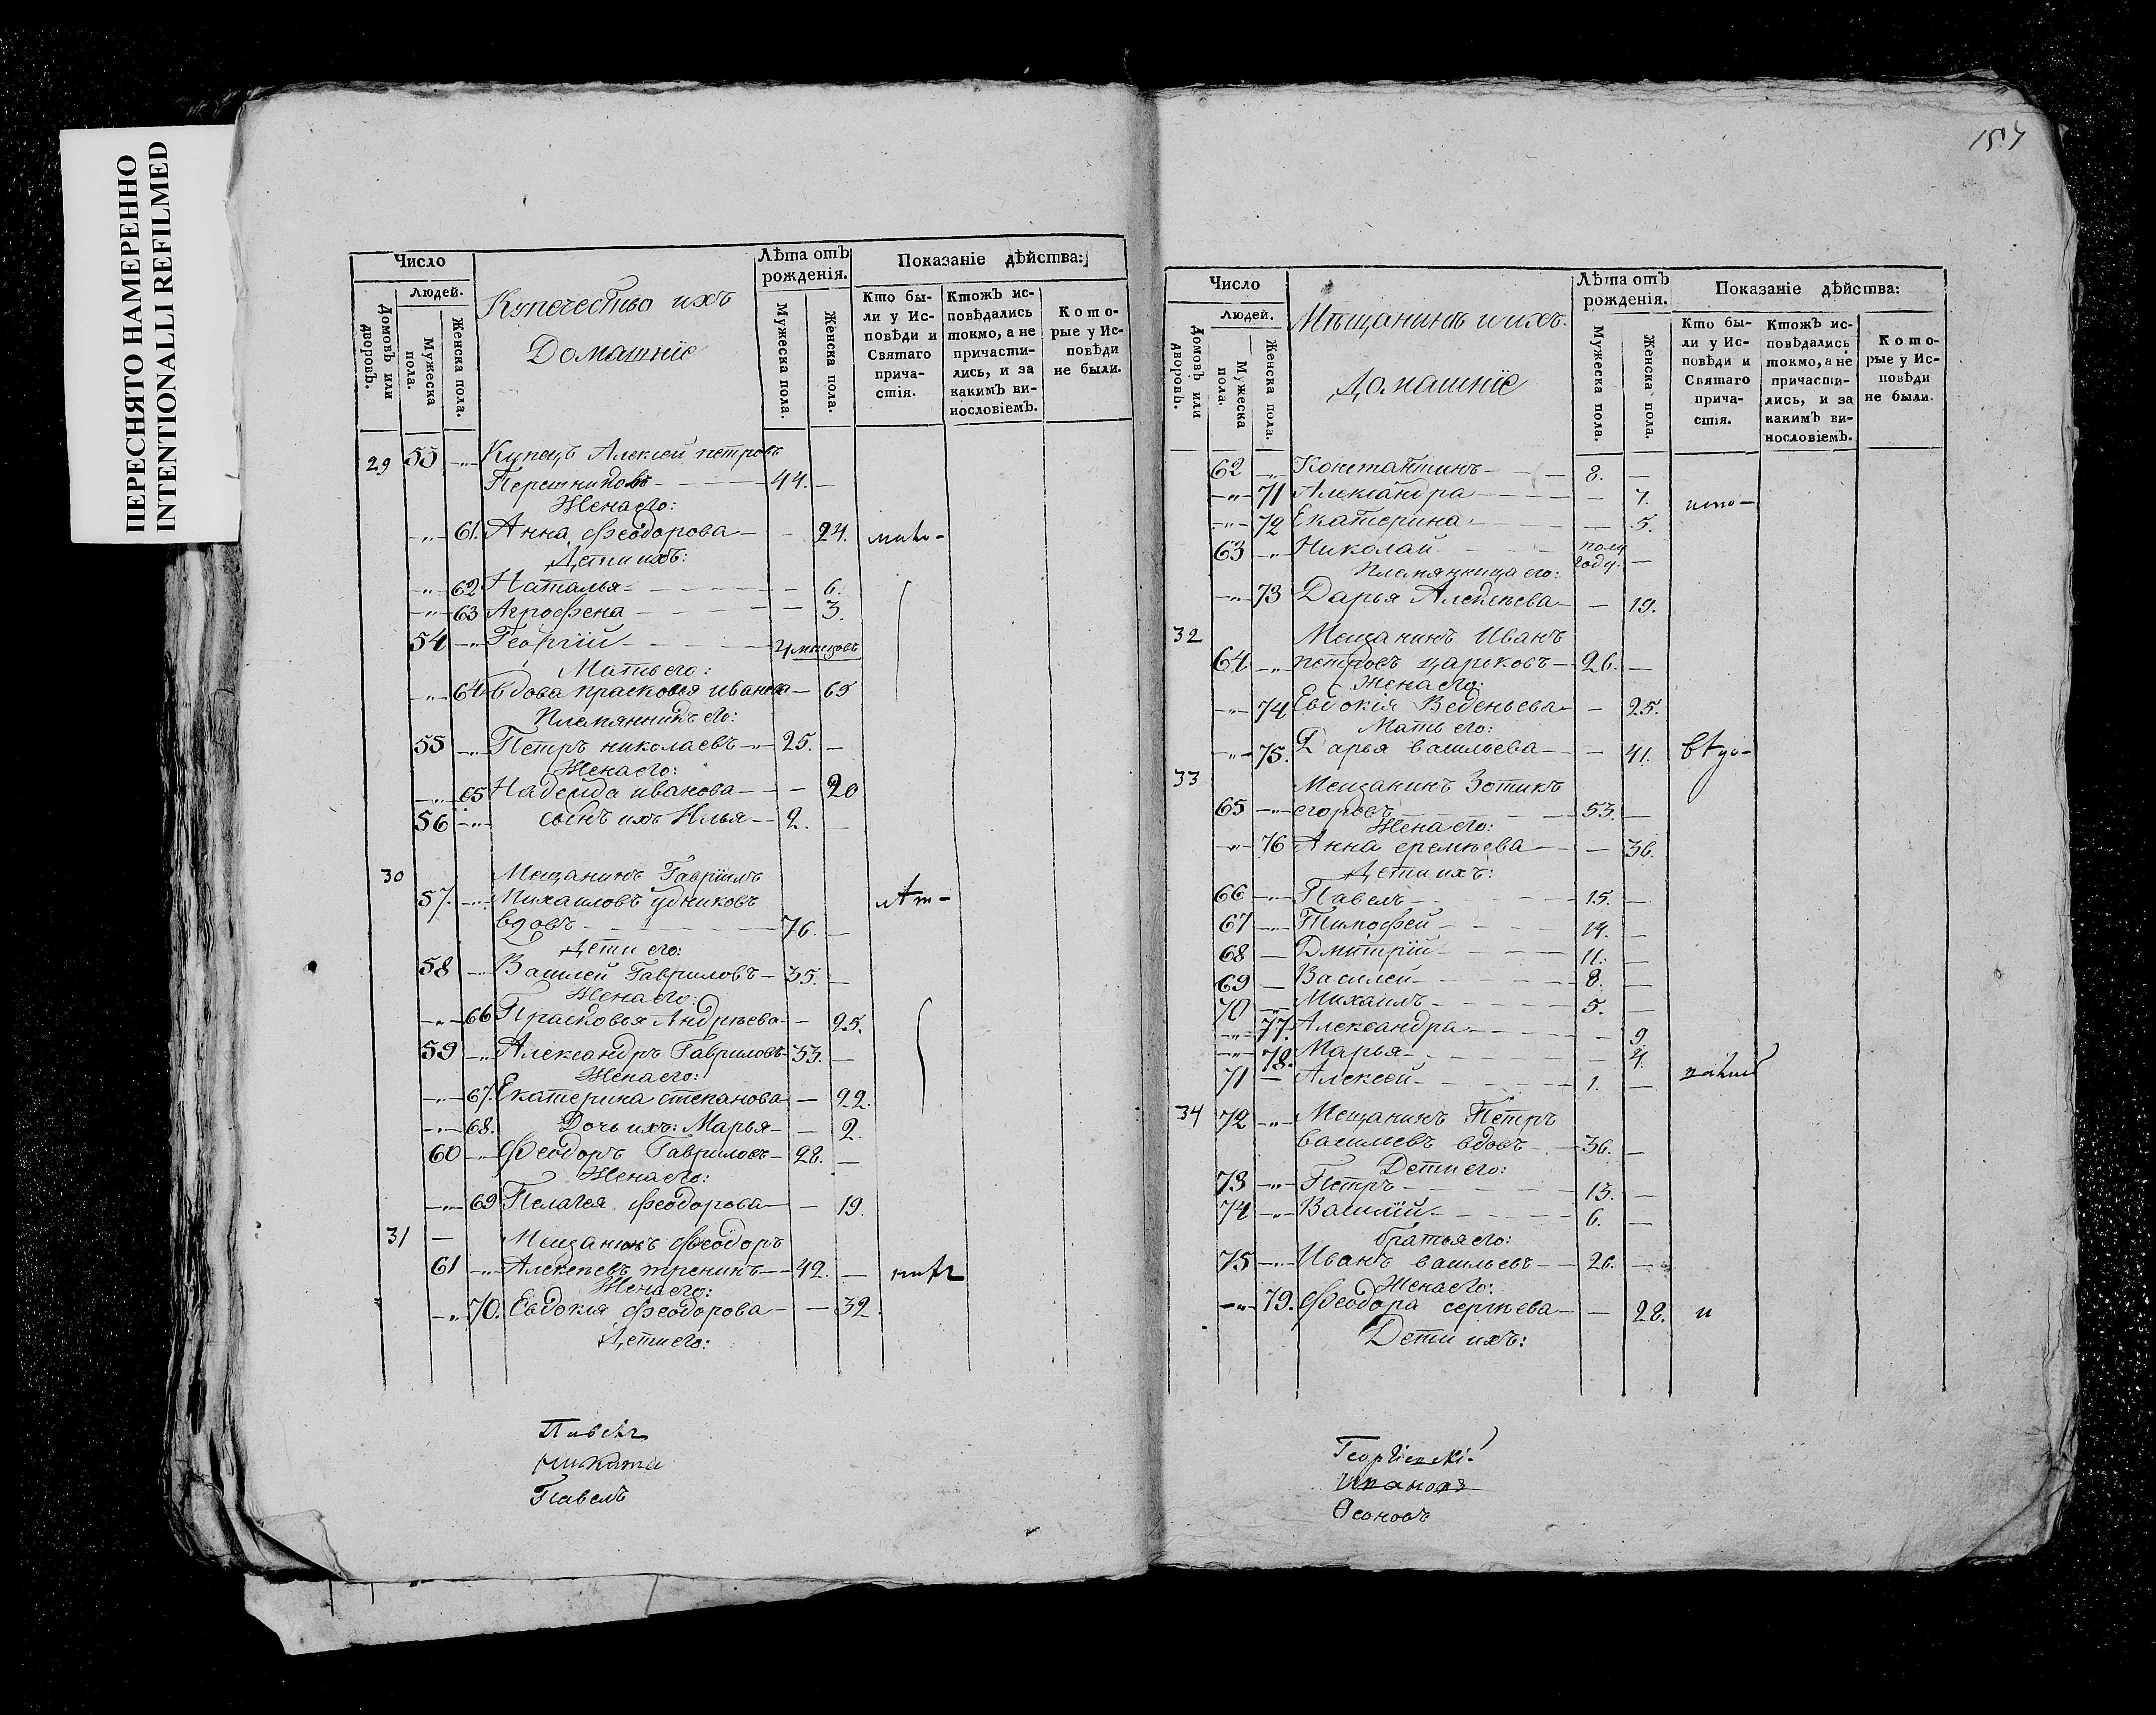 ПЕРЕСНЯТО НАМЕРЕННО
INTENTIONALLI REFILMED
Число
Людей.
Домовъ или дворовъ.
Мужеска пола.
Женска пола.
Купечество ихъ
Домашніе
Лѣта отъ рожденія.
Мужеска пола.
Женска пола.
Показаніе дѣйства:
Кто были у Исповѣди и Святаго причастія.
Ктожъ исповѣдались токмо, а не причастились, и за какимъ винословіемъ.
Которые у Исповѣди не были.
29 53 -„- Купецъ Алексей петровъ
44. —
Жена его:
-„- 61. Анна Феодорова — - 24.
Дети ихъ:
-„- 62 Наталья - - 6.
-„- 63 Агрофена - - 3.
54 -„- Георгій - 4 месецовъ
Мать его:
-„- 64 вдова прасковья иванова — 65
Племянникъ его:
55 -„- Петръ николаевъ -„- 25. —
Жена его:
-„- 65 Надежда иванова - - 20
56 -„- сынъ ихъ Илья - 2. —
30 Мещанинъ Гавріилъ
57. -„- Михаиловъ
вдовъ - 76. —
Дети его:
58 -„- Василей Гавриловъ - 35. —
Жена его:
-„- 66 Прасковья Андреева - - 25.
59 -„- Александръ Гавриловъ - 33. —
Жена его:
-„- 67. Екатерина степанова — 22.
-„- 68. Дочь ихъ: Марья - - 2.
60 -„- Феодоръ Гавриловъ - 28. —
Жена его:
-„- 69 Пелагея Феодорова — - 19.
31 — Мещанинъ Феодоръ
61 -„- Алексеевъ тренинъ - 42. —
Жена его:
-„- 70. Евдокія Феодорова - - 32.
Дети его:
Никита
Павелъ
157
Число
Людей.
Домовъ или дворовъ.
Мужеска пола.
Женска пола.
Мѣщанинъ и ихъ
Домашніе
Лѣта отъ рожденія.
Мужеска пола.
Женска пола.
Показаніе дѣйства:
Кто были у Исповѣди и Святаго причастія.
Ктожъ исповѣдались токмо, а не причастились, и за какимъ винословіемъ.
Которые у Исповѣди не были.
62 -„- Константинъ - 8. —
-„- 71 Александра - — 7.
-„- 72 Екатерина - — 5.
63 -„- Николай - полу году. —
Племянница его:
-„- 73 Дарья Алексеева - — 19.
32 Мещанинъ Иванъ
64 -„- петровъ царковъ - 26. —
Жена его:
-„- 74 Евдокія Веденьева - — 25.
Мать его:
-„- 75. Дарья васильева - — 41.
33 Мещанинъ Зотикъ
65 -„- егоровъ - 53. —
Жена его:
-„- 76 Анна еремеева - — 36.
Дети ихъ:
66 -„- Павелъ - 15. —
67 -„- Тимофей - 14. —
68 — Дмитрій - 11. —
69 — Василей - 8. —
70 -„- Михаилъ - 5. —
-„- 77. Александра - - 9.
-„- 78. Марья - — 4.
71 — Алексей - 1. —
34 72 -„- Мещанинъ Петръ
васильевъ вдовъ - 36. —
Дети его:
73 -„- Петръ - 13. —
74 -„- Василій - 6. —
братья его:
75 -„- Иванъ васильевъ - 26. —
Жена его:
-„- 79. Феодора сергеева - — 28. и
Дети ихъ: